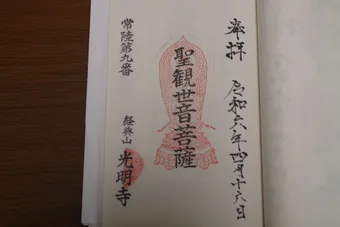 奉拝
令和六年四月十六日
聖観世音菩薩
常陸第九番
光明寺